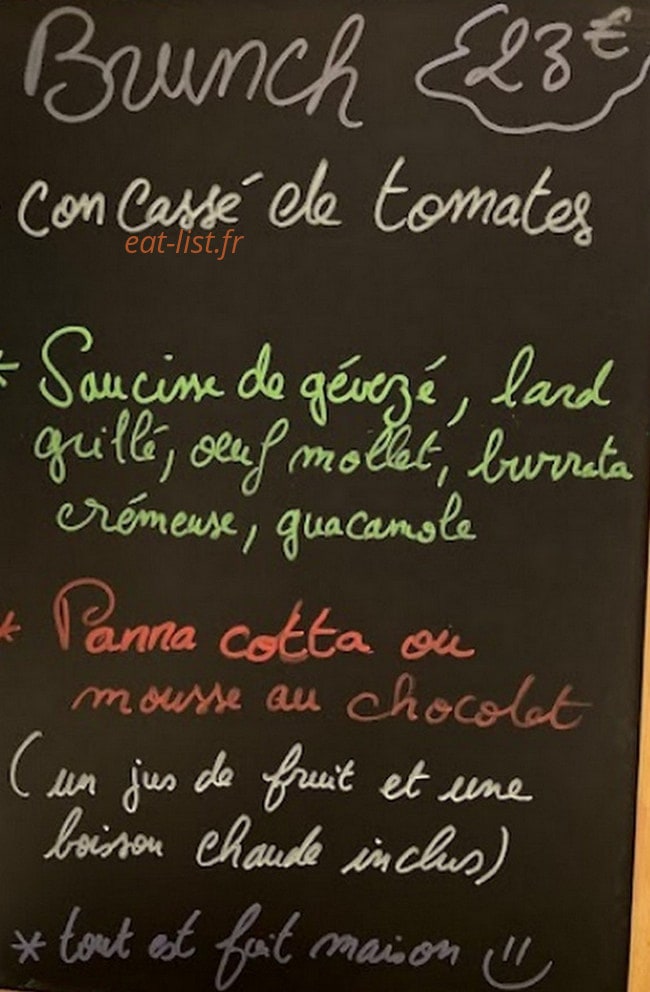 Brunch 23€
Concassé de tomates
eat-list.fr
* Saucisse de gévezé, lard
grillé, oeuf mollet, burrata
crémeuse, guacamole
* Panna cotta ou
mousse au chocolat
(un jus de fruit et une
boisson chaude inclus)
* tout est fait maison